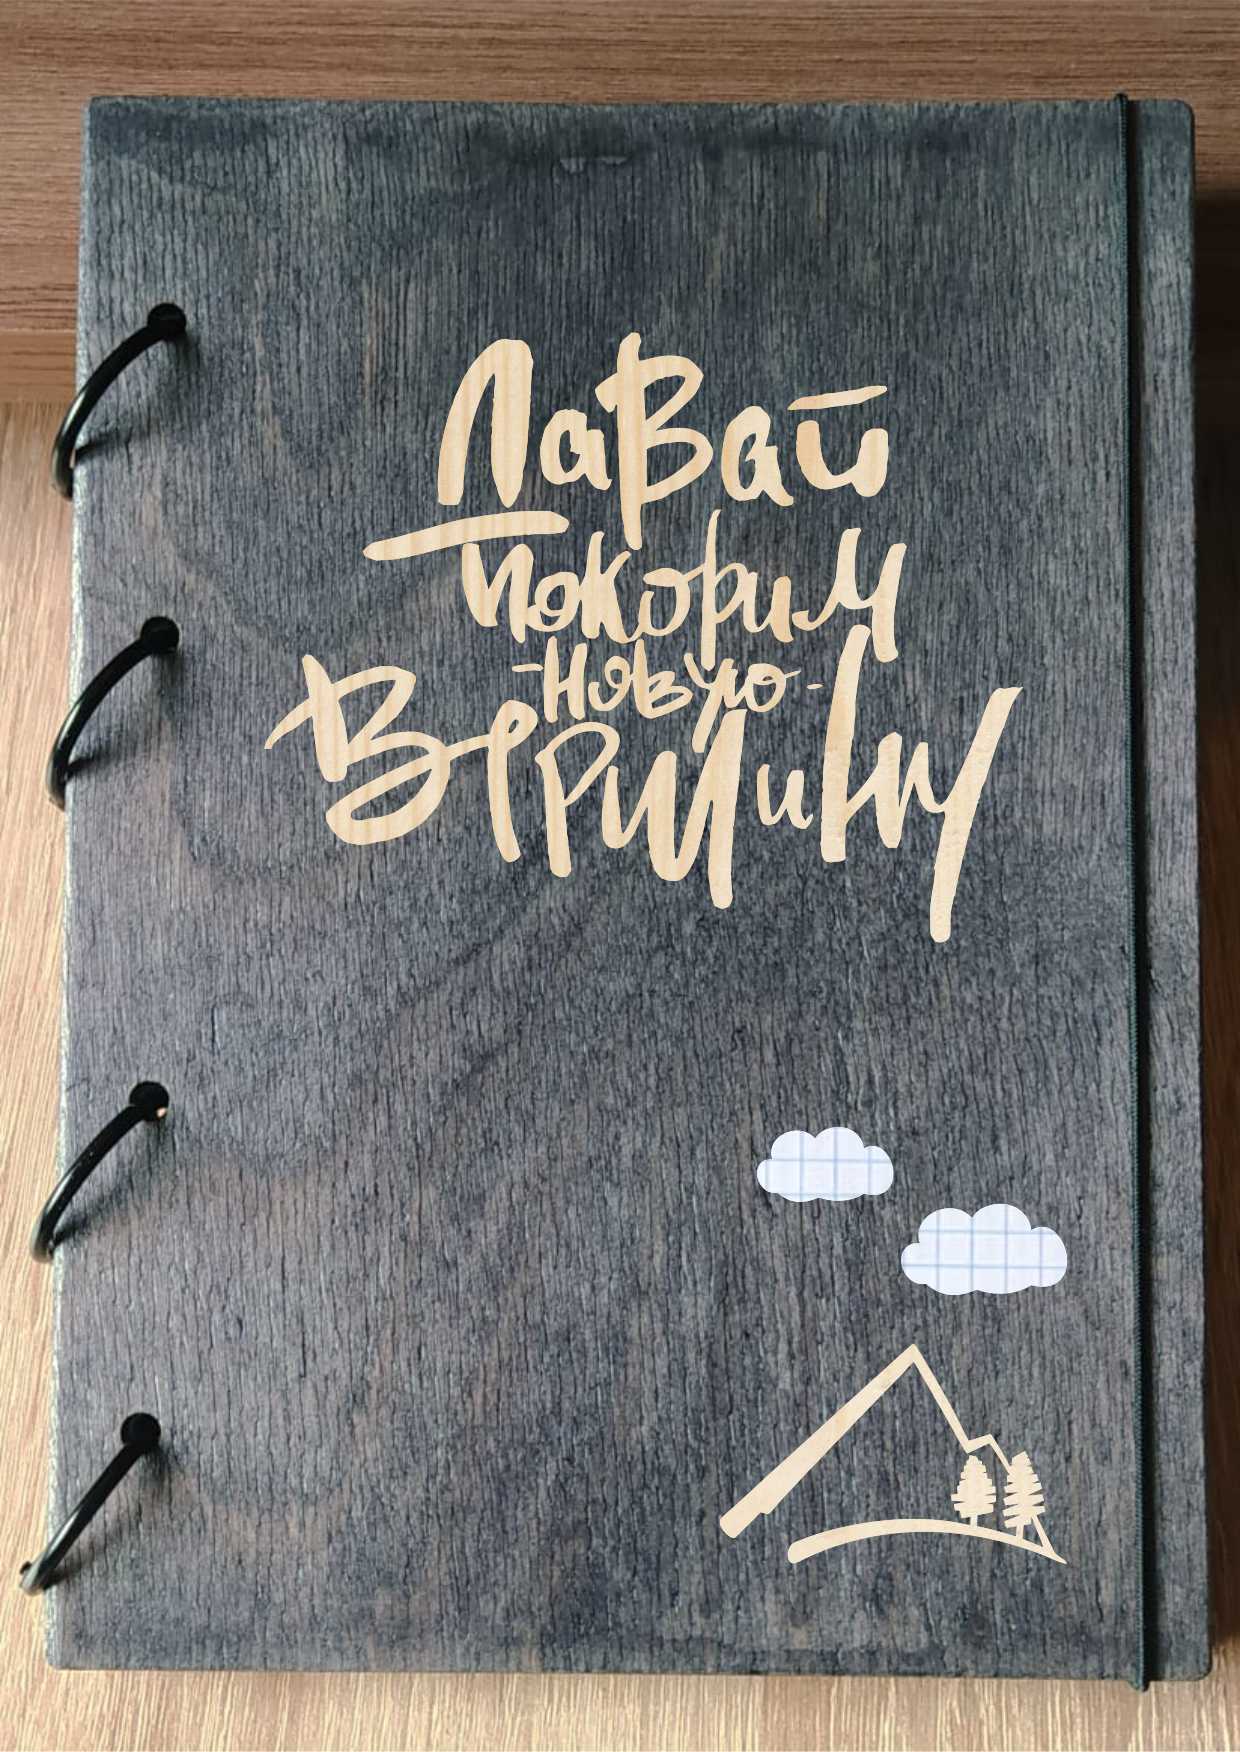 Давай
покорим
-новую-
вершину